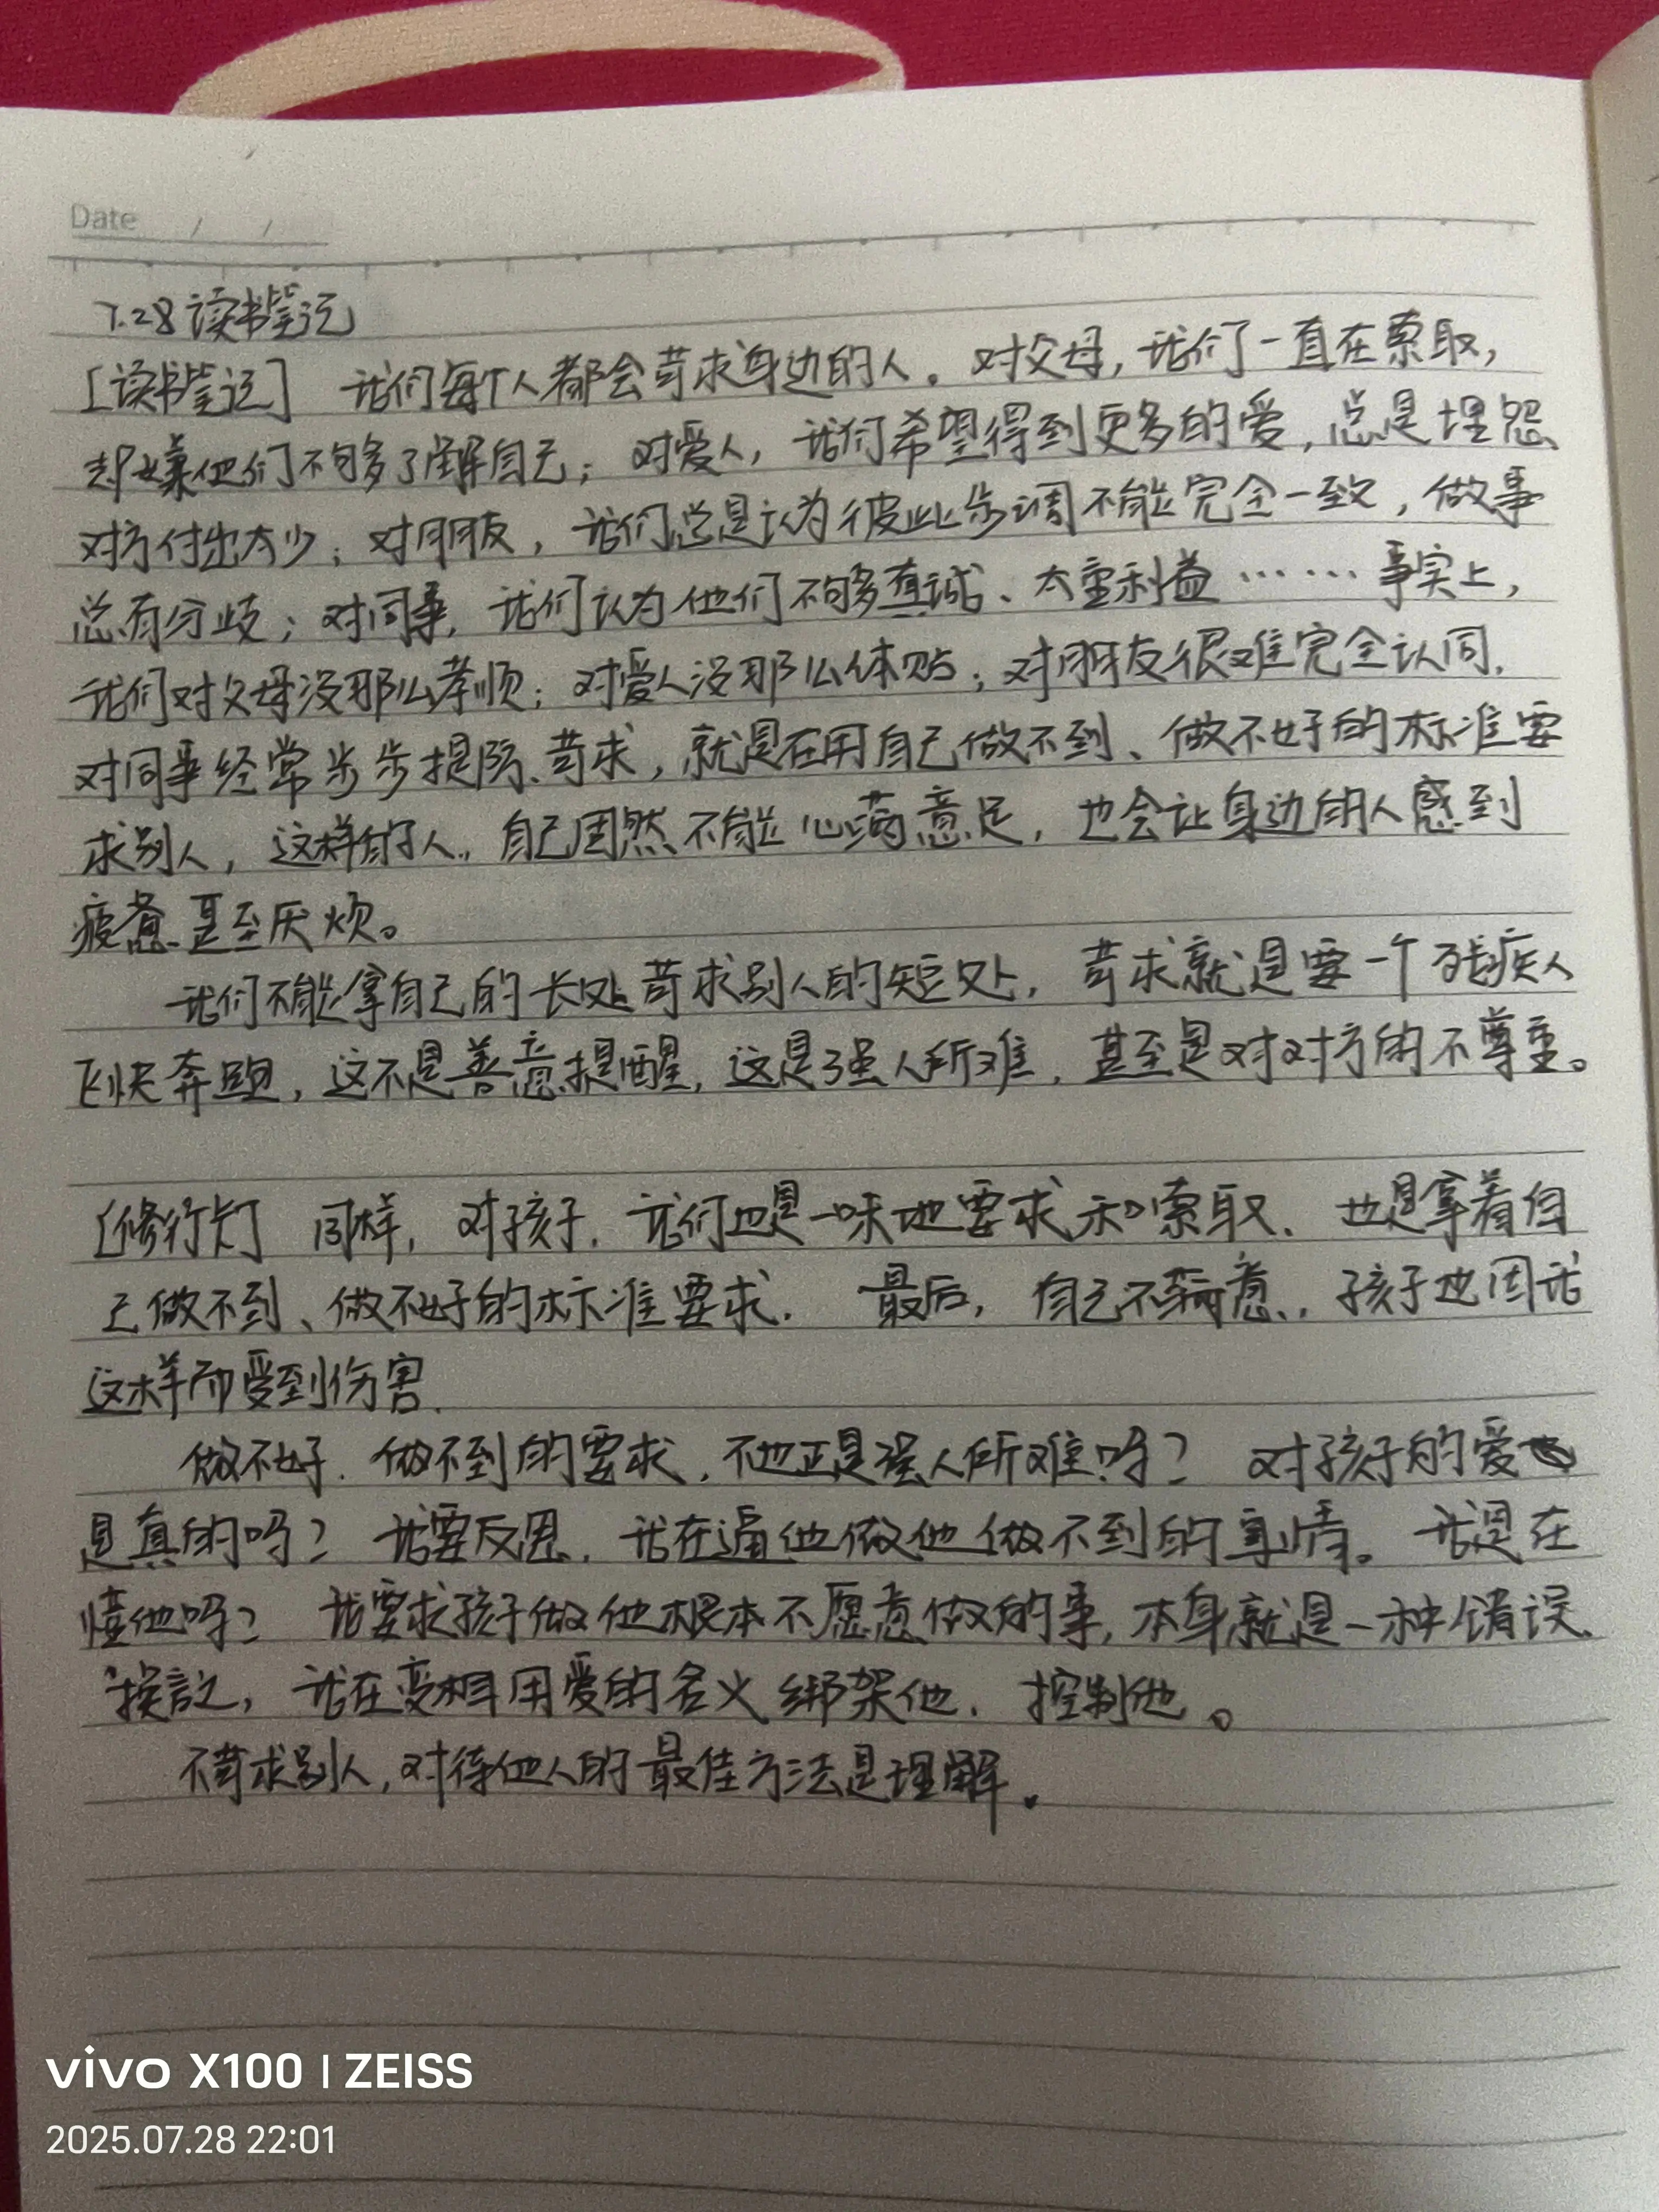 Date / /
7.28 读书笔记
[读书笔记] 我们每个人都会苛求身边的人。对父母，我们一直在索取，
却嫌他们不够了解自己；对爱人，我们希望得到更多的爱，总是埋怨
对方付出太少；对朋友，我们总是认为彼此步调不能完全一致，做事
总有分歧；对同事，我们认为他们不够真诚、太重利益……事实上，
我们对父母没那么孝顺；对爱人没那么体贴；对朋友很难完全认同，
对同事经常步步提防。苛求，就是在用自己做不到、做不好的标准要
求别人，这样的人，自己固然不能心满意足，也会让身边的人感到
疲惫甚至厌烦。
我们不能拿自己的长处苛求别人的短处，苛求就是要一个残疾人
飞快奔跑，这不是善意提醒，这是强人所难，甚至是对对方的不尊重。
[修行灯] 同样，对孩子，我们也是一味地要求和索取，也是拿着自
己做不到、做不好的标准要求。最后，自己不满意，孩子也因我
这样而受到伤害.
做不好、做不到的要求，不也正是强人所难吗？对孩子的爱
是真的吗？我要反思，我在逼他做他做不到的事情。我是在
懂他吗？我要求孩子做他根本不愿意做的事，本身就是一种错误，
换言之，我在变相用爱的名义绑架他，控制他。
不苛求别人，对待他人的最佳方法是理解。
vivo X100 | ZEISS
2025.07.28 22:01